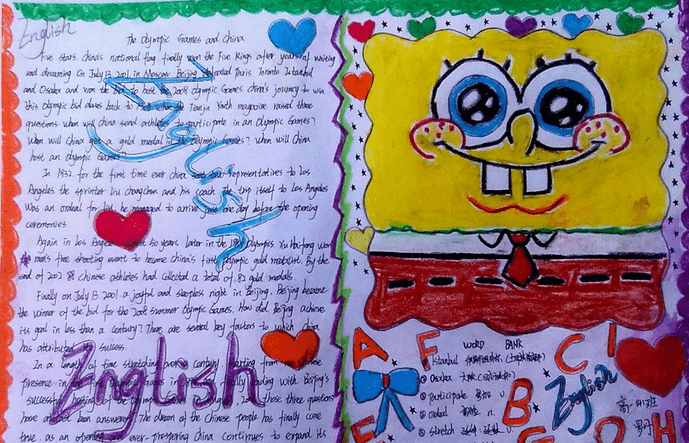 English
The Olympic Games and China
Five stars. China's national flag finally won the Five Rings after years of waiting
and dreaming On July 13 2001 in Moscow Beijing Paris Toronto Istanbul
and Osaka and won the bid to host the 2008 Olympic Games China's journey to win
this Olympic bid dates back to Tianjin Youth magazine raised three
questions when will China send athletes to participate in an Olympic Games?
When will China get a gold medal in the Olympic Games? when will China
host an Olympic Games
English
In 1932 for the first time ever China representatives to Los
Angeles the sprinter Liu changchun and his coach The trip itself to Los Angeles
was an ordeal for but he managed to arrive just one day before the opening
ceremonies
Again in Los Angeles years later in the Olympics. Xu Hai-fong won
men's free shooting event to become China's first Olympic gold medalist. By the
end of 2002 Chinese athletes had collected a total of 82 gold medals
Finally on July 13 2001 a joyful and sleepless night in Beijing. Beijing became
the winner of the bid for the 2008 summer Olympic Games. How did Beijing achieve
its goal in less than a century? There are several key factors to which China
has attributed success.
English
In a length of time stretching over century starting from
presence in finally ending with Beijing's
success hosting of the Olympic those three questions
have almost been answered The dream of the Chinese people has finally come
true. as an opening ever-prospering China continues to expand its
WORD BANK
Istanbul
Osaka
participate v.
medal n.
stretch v.
A
F
C
I
B
E
G
O
H
English